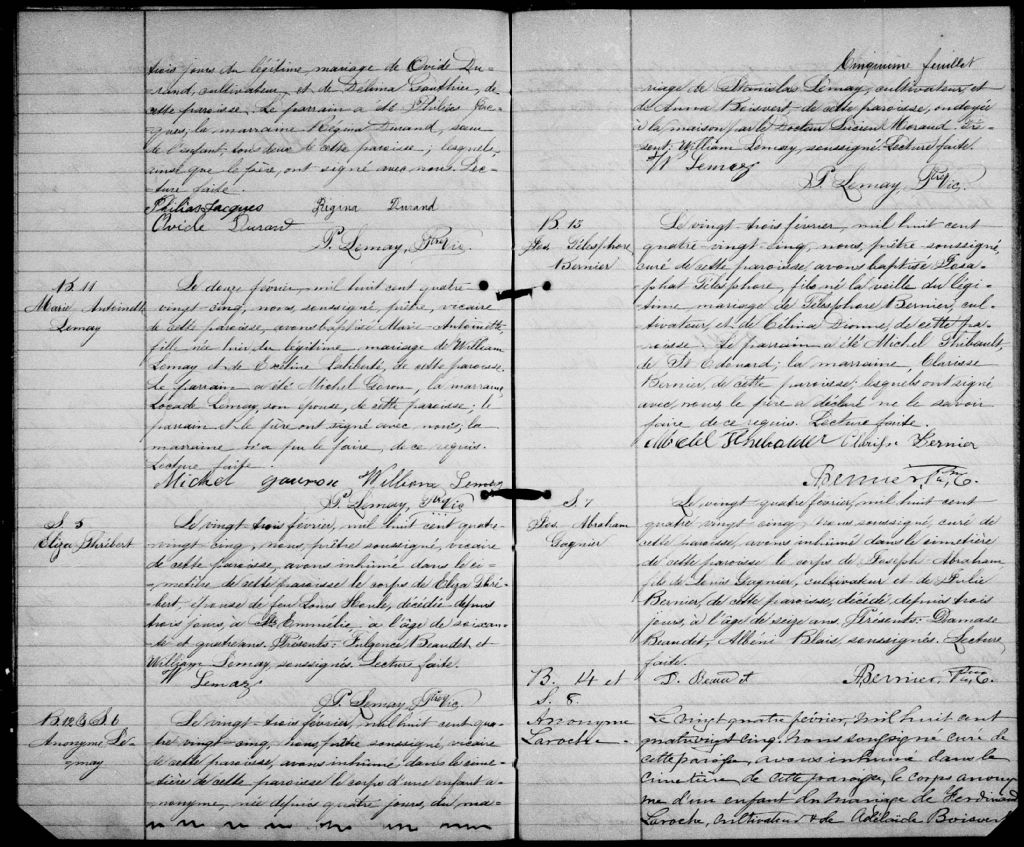 trois jours du légitime mariage de Ovide Du-
rand, cultivateur, et de Délima Gauthier, de
cette paroisse. Le parrain a été Philias Jac-
ques, la marraine Régina Durand, soeur
de l'enfant, tous deux de cette paroisse; lesquels,
ainsi que le père, ont signé avec nous. Lec-
ture faite.
Philias Jacques Regina Durand
Ovide Durand
P. Lemay, Ptre Vic.
B. 11
Marie Antoinette
Lemay
Le douze février, mil huit cent quatre
vingt-cinq, nous, soussigné, prêtre, vicaire
de cette paroisse, avons baptisé Marie-Antoinette,
fille née hier du légitime mariage de William
Lemay et de Exéline Laliberté, de cette paroisse.
Le parrain a été Michel Gervon, la marraine
Locade Lemay, son épouse, de cette paroisse; le
parrain et le père ont signé avec nous, la
marraine n'a pu le faire, de ce requis.
Lecture faite.
Michel William Lemay
P. Lemay, Ptre Vic
S. 5
Eliza Thribert
Le vingt-trois février, mil huit cent quatre-
vingt-cinq, nous, prêtre soussigné, vicaire
de cette paroisse, avons inhumé dans le ci-
metière de cette paroisse le corps de Eliza Thri-
bert, épouse de feu Louis Houle, décédée depuis
trois jours, à Ste Emmélie, à l'âge de soixan-
te et quatre ans. Présents: Fulgence Beaudet et
William Lemay, soussignés. Lecture faite.
W Lemay
P. Lemay, Ptre Vic.
B. 12 & S. 6
Anonyme Le-
may
Le vingt-trois février, mil huit cent qua-
tre vingt-cinq, nous, prêtre soussigné, vicaire
de cette paroisse, avons inhumé dans le cime-
tière de cette paroisse le corps d'une enfant a-
nonyme, née depuis quatre jours, du ma-
Cinquième feuillet
riage de Stanislas Lemay, cultivateur, et
de Anna Boisvert de cette paroisse, ondoyée
à la maison par le Docteur Lucien Moraud. Pré-
sent, William Lemay, soussigné. Lecture faite.
W Lemay
P. Lemay, Ptre Vic.
B. 13
Jos. Télesphore
Bernier
Le vingt-trois février, mil huit cent
quatre-vingt-cinq, nous, prêtre soussigné,
curé de cette paroisse, avons baptisé Josa-
phat Télesphore, fils né la veille du légi-
time mariage de Télesphore Bernier, cul-
tivateur, et de Célina Dionne, de cette pa-
roisse. Le parrain a été Michel Thibault,
de St Edouard; la marraine, Clarisse
Bernier, de cette paroisse, lesquels ont signé
avec nous, le père a déclaré ne le savoir
faire de ce requis. Lecture faite.
Bernier
Bernier, Ptre C.
S. 7
Jos. Abraham
Gagnier
Le vingt quatre février, mil huit cent
quatre vingt cinq, nous soussigné, curé de
cette paroisse, avons inhumé dans le cimetière
de cette paroisse le corps de Joseph Abraham
fils de Louis Gagnier, cultivateur et de Julie
Bernier, de cette paroisse, décédé depuis trois
jours, à l'âge de seize ans. Présents: Damase
Beaudet, Albéni Blais, soussignés. Lecture
faite.
D. Beaudet Bernier, Ptre C.
B. 14 et
S. 8.
Anonyme
Laroche
Le vingt quatre février, mil huit cent
quatrevingt cinq, nous soussigné curé de
cette paroisse, avons inhumé dans le
cimetière de cette paroisse, le corps anony-
me d'un enfant du mariage de Ferdinand
Laroche, cultivateur & de Adélaïde Boisvert